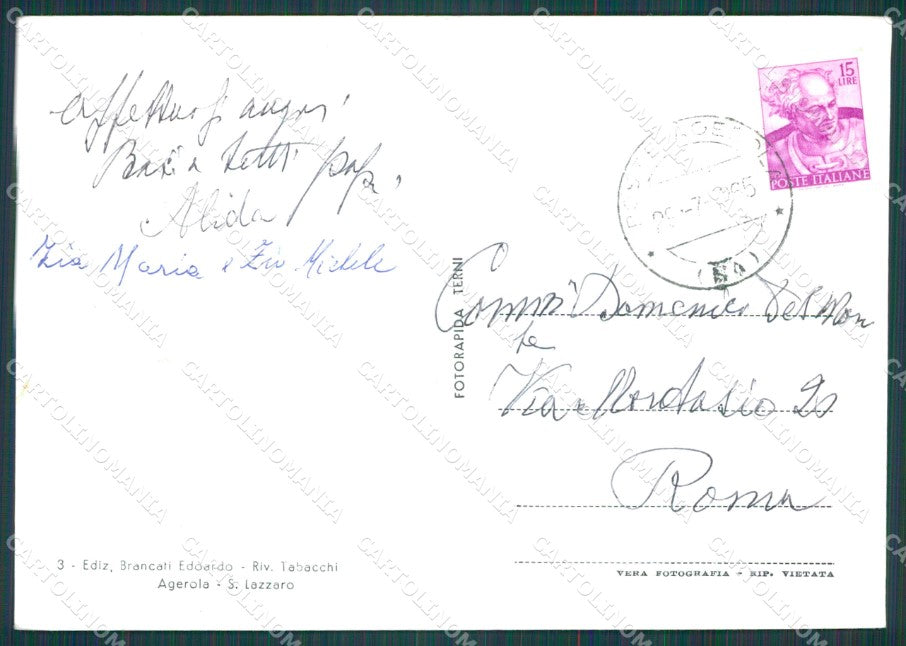 Affettuosi auguri
Baci a tutti papà,
Alida
Zia Maria e Zio Michele
15
LIRE
POSTE ITALIANE
FOTORAPIDA TERNI
Domenico Del Mon
te
Via
Roma
3 - Ediz. Brancati Edoardo - Riv. Tabacchi
Agerola - S. Lazzaro
VERA FOTOGRAFIA - RIP. VIETATA
CARTOLINOMANIA